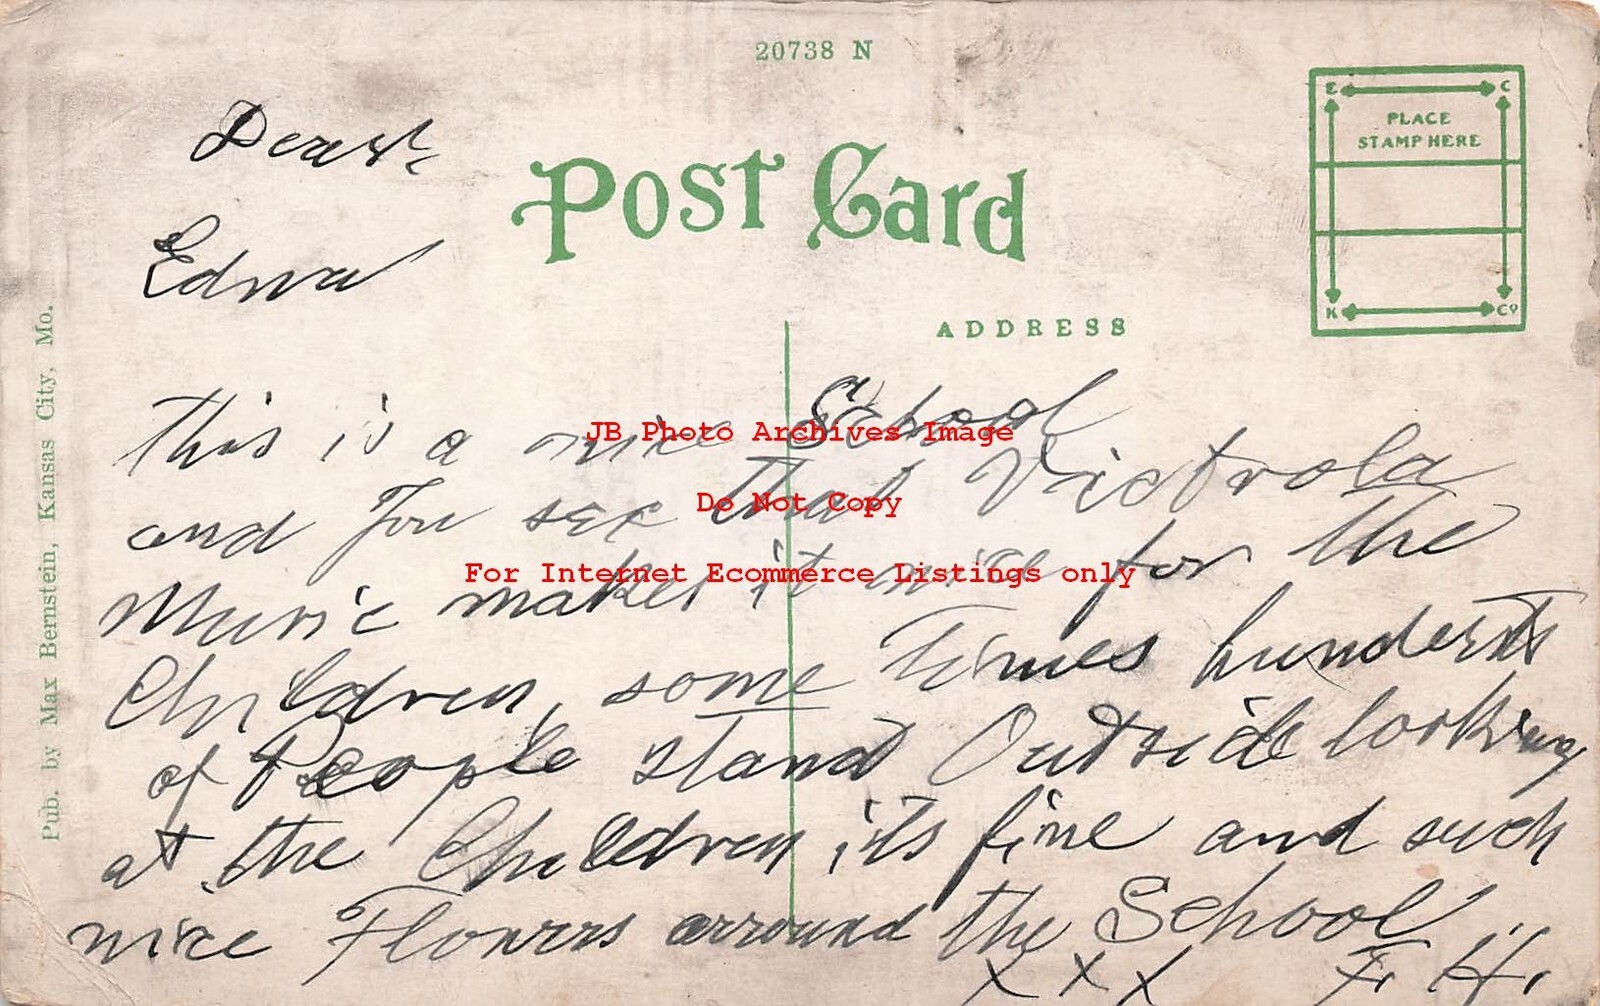 20738 N
Dearst
Edna
POST CARD
E C
PLACE
STAMP HERE
K Co
ADDRESS
Pub. by Max Bernstein, Kansas City, Mo.
This is a nice School
and You see that Victrola
Music makes it nice for the
Children, some Times hunderts
of People stand Outside looking
at the Children, its fine and such
nice Flowers arround the School
xxx F. H.
JB Photo Archives Image
Do Not Copy
For Internet Ecommerce Listings only